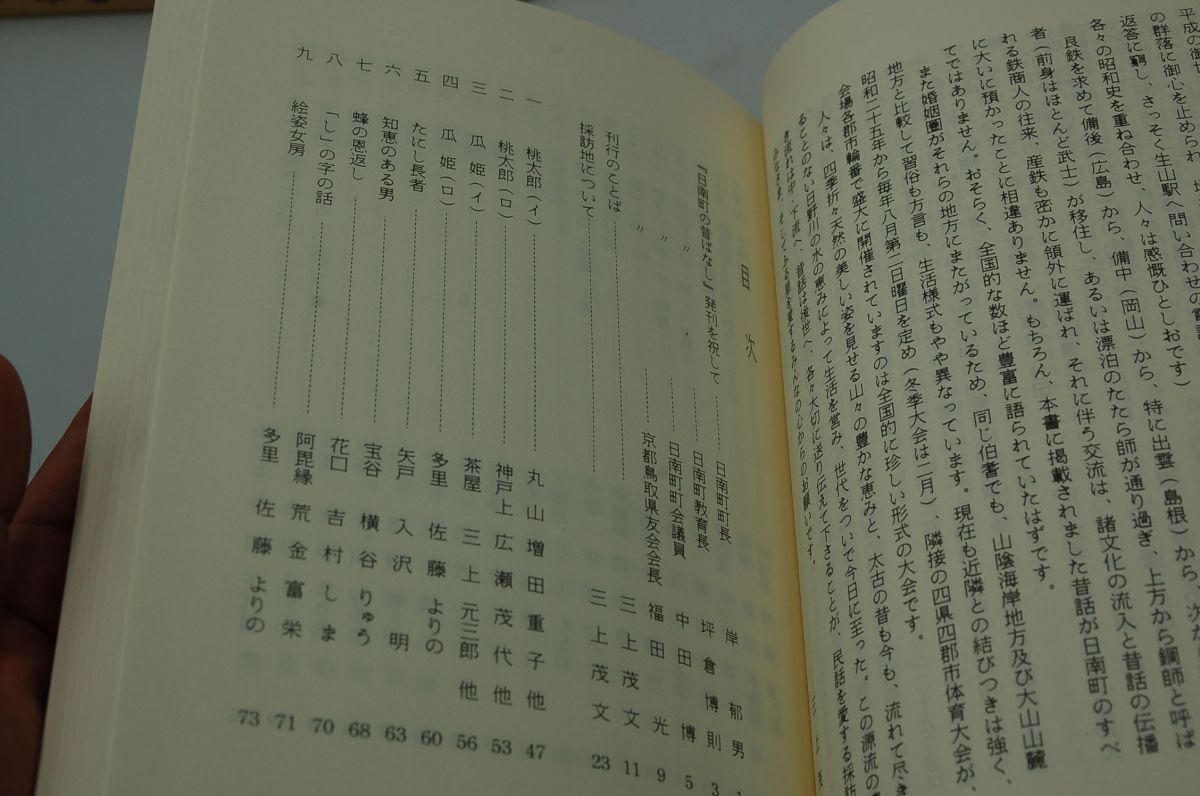 平成の御
の群落に御心を止められ
返答に窮し、さっそく生山駅へ問い合わせの
各々の昭和史を重ね合わせ、人々は感慨ひとしおです）
良鉄を求めて備後（広島）から、備中（岡山）から、特に出雲（島根）から、
者（前身はほとんど武士）が移住し、あるいは漂泊のたたら師が通り過ぎ、上方から鋼師と呼ば
れる鉄商人の往来、産鉄も密かに領外に運ばれ、それに伴う交流は、諸文化の流入と昔話の伝播
に大いに預かったことに相違ありません。もちろん、本書に掲載されました昔話が日南町のすべ
てではありません。おそらく、全国的な数ほど豊富に語られていたはずです。
また婚姻圏がそれらの地方にまたがっているため、同じ伯耆でも、山陰海岸地方及び大山山麓
地方と比較して習俗も方言も、生活様式もやや異なっています。現在も近隣との結びつきは強く、
昭和二十五年から毎年八月第二日曜日を定め（冬季大会は二月）、隣接の四県四郡市体育大会が、
会場各郡市輪番で盛大に開催されていますのは全国的に珍しい形式の大会です。
人々は、四季折々天然の美しい姿を見せる山々の豊かな恵みと、太古の昔も今も、流れて尽き
ることのない日野川の水の恵みによって生活を営み、世代をついで今日に至った。この源流の
き流れは中・下流へ、昔話は後世へ、各々大切に送り伝えて下さることが、民話を愛する採訪
みなさま、そしてふる里を愛するみんなの心からのお願いです。
三上
目次
『日南町の昔ばなし』発刊を祝して 日南町町長 岸郁男 1
〃 日南町教育長 坪倉博則 3
〃 日南町町会議員 中田博 5
〃 京都鳥取県友会会長 福田光 9
刊行のことば 三上茂文 11
採訪地について 三上茂文 23
一 桃太郎（イ） 丸山 増田重子他 47
二 桃太郎（ロ） 神戸上 広瀬茂代他 53
三 瓜姫（イ） 茶屋 三上元三郎他 56
四 瓜姫（ロ） 多里 佐藤よりの 60
五 たにし長者 矢戸 入沢明 63
六 知恵のある男 宝谷 横谷りゅう 68
七 蜂の恩返し 花口 吉村しま 70
八 「し」の字の話 阿毘縁 荒金富栄 71
九 絵姿女房 多里 佐藤よりの 73